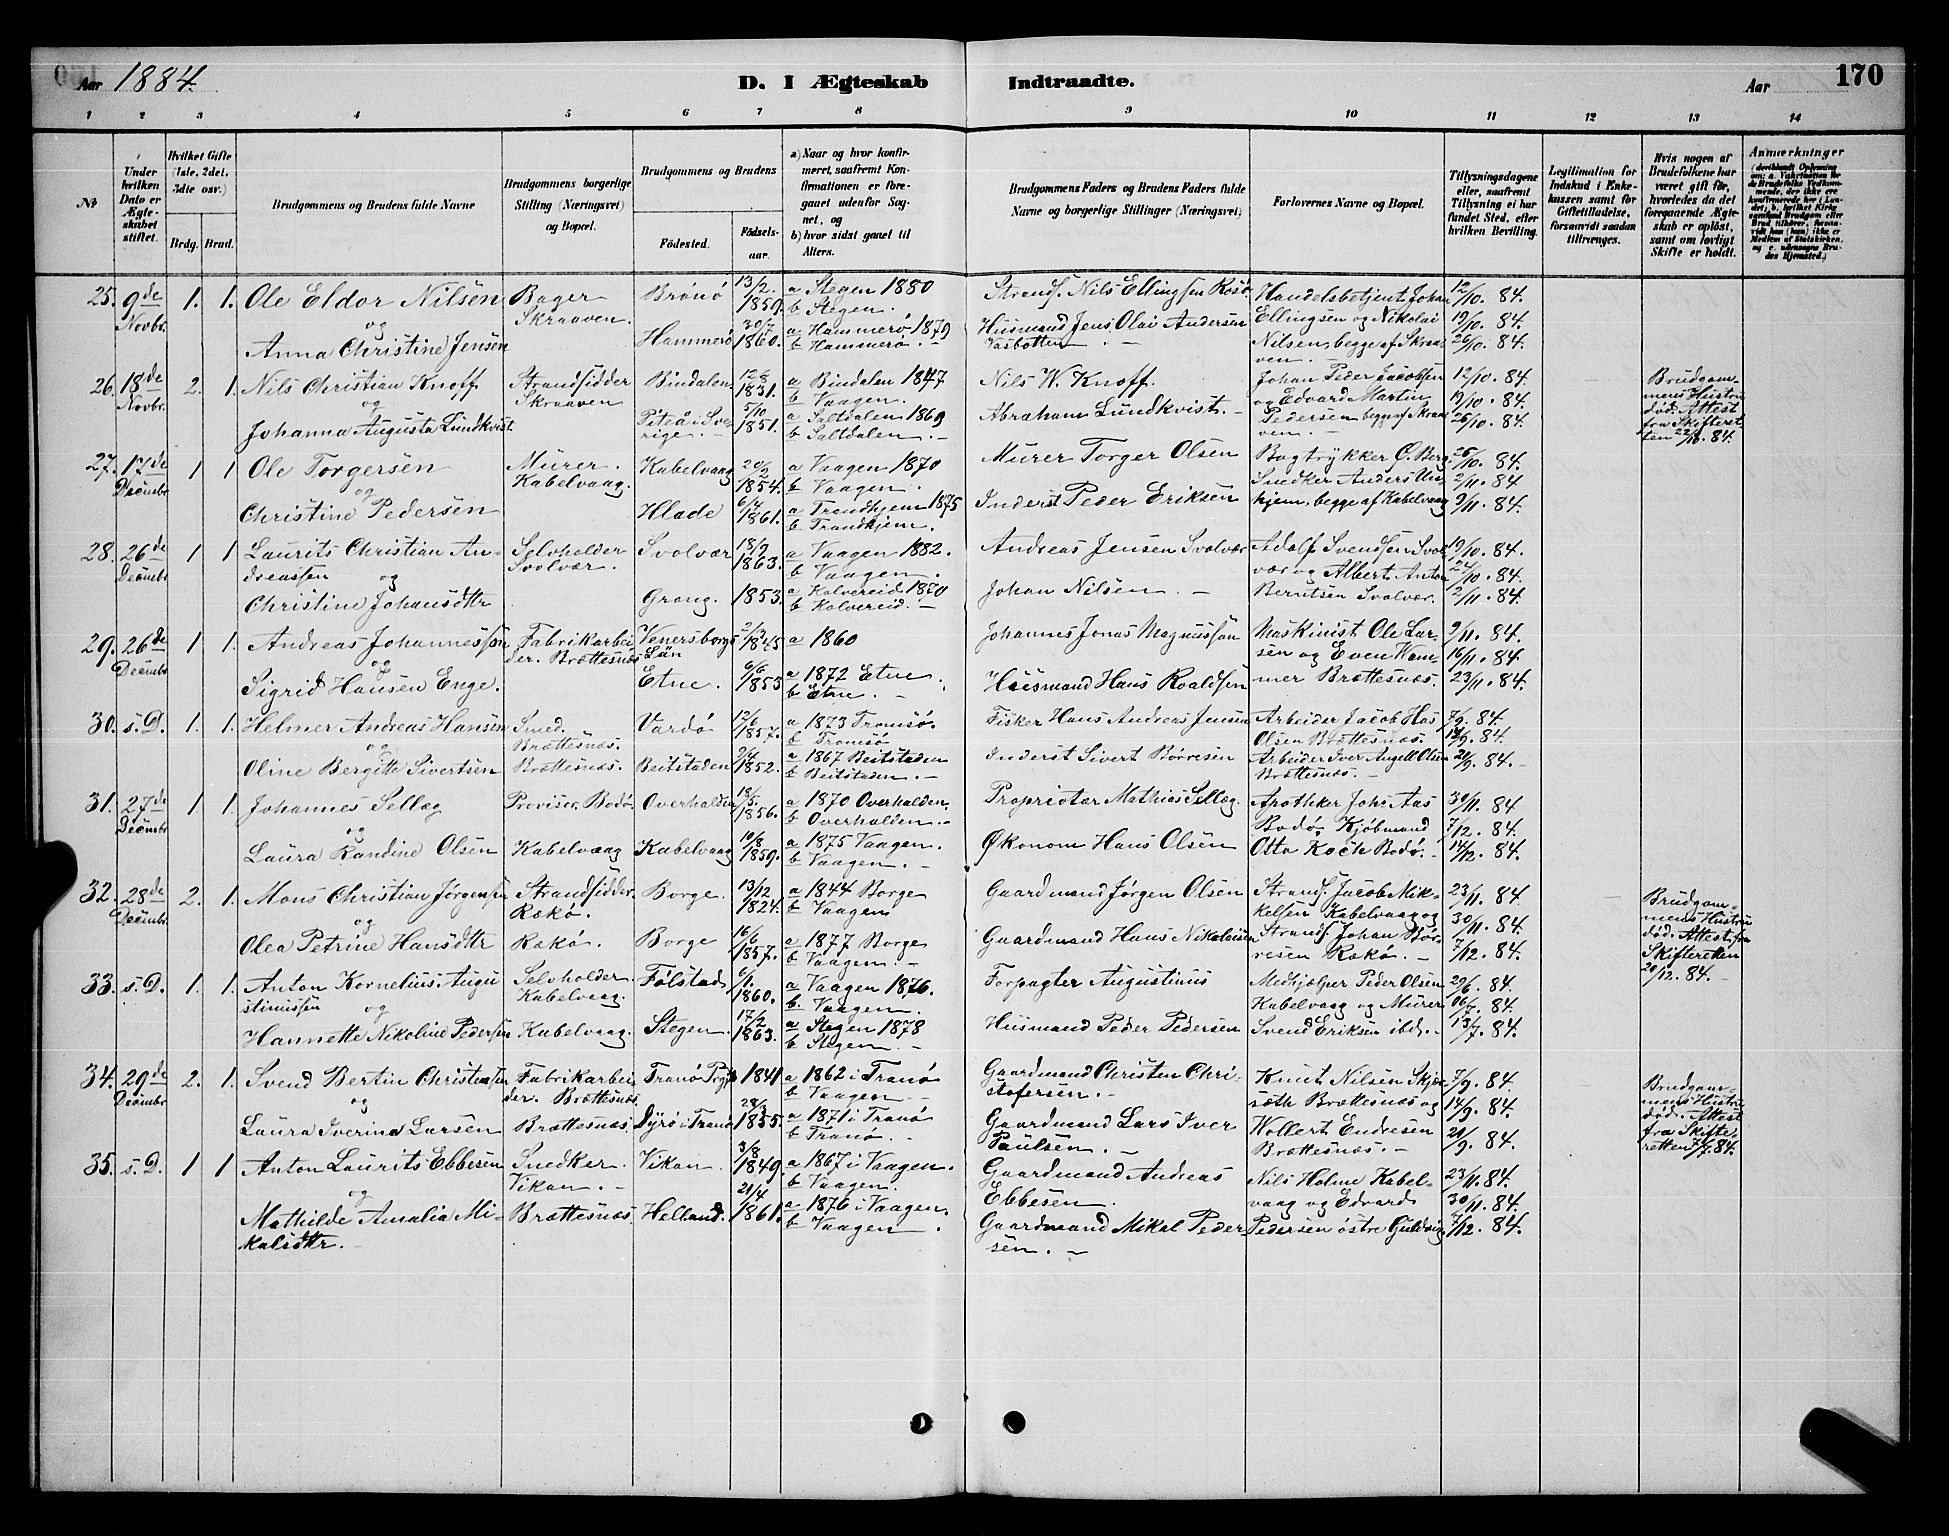 Aar 1884.
D. I Ægteskab Indtraadte.
Aar
170
1 2 3 4 5 6 7 8 9 10 11 12 13 14
No
Under hvilken Dato er Ægteskabet stiftet.
Hvilket Gifte (1ste, 2det, 3die osv.)
Brdg. Brud.
Brudgommens og Brudens fulde Navne
Brudgommens borgerlige Stilling (Næringsvei) og Bopæl.
Brudgommens og Brudens
Fødested.
Fødsels-aar.
a) Naar og hvor konfirmeret, saafremt Konfirmationen er foregaaet udenfor Sognet, og
b) hvor sidst gaaet til Alters.
Brudgommens Faders og Brudens Faders fulde Navne og borgerlige Stillinger (Næringsvei)
Forlovernes Navne og Bopæl.
Tillysningsdagene eller, saafremt Tillysning ei har fundet Sted, efter hvilken Bevilling.
Legitimation for Indskud i Enkekassen samt for Giftetilladelse, forsaavidt saadan tiltrænges.
Hvis nogen af Brudefolkene har været gift før, hvorledes da det foregaaende Ægteskab er opløst, samt om lovligt Skifte er holdt.
Anmærkninger
25. 9de Novbr. 1. 1. Ole Eldor Nilsen Bager Skraaven. Brønø 13/2. 1859. a Stegen 1880 b Stegen. Strands. Nils Ellingsen Handelsbetjent Johan 12/10. 84.
og
Anna Christine Jensen Hammerø 30/7 1860. a Hammerø 1879 b Hammerø. Husmand Jens Olai Andersen Vasbotten. Ellingsen og Nikolai Nilsen, begge af Skraaven. 19/10. 84. 26/10. 84.
26. 18de Novbr. 2. 1. Nils Christian Knoff Strandsidder Skraaven Bindalen 1831. a Bindalen 1847 b Vaagen. Nils W. Knoff. Johan Peder Jacobsen 12/10. 84. Brudgommens Hustru død. Attest fra Skifteretten 84.
og
Johanna Augusta Lundkvist Piteå i Sverige. 5/10 1851. a Saltdalen 1869 b Saltdalen. Abraham Lundkvist. og Edvard Martin Pedersen begge af Skraaven. 19/10. 84. 26/10. 84.
27. 17de Decembr 1 1 Ole Torgersen Murer. Kabelvaag. Kabelvaag 20/2 1854. a Vaagen 1870 b Vaagen. Murer Torger Olsen Bogtrykker O. Berg 26/10. 84.
og
Christine Pedersen Hlade 1861. a Trondhjem 1875 b Trondhjem. Inderst Peder Eriksen Snedker Anders begge af Kabelvaag 2/11. 84 9/11. 84.
28. 26de Decembr 1 1 Laurits Christian Andreassen Selvholder Svolvær. Svolvær 18/9 1863. a Vaagen 1882. b Vaagen. Andreas Jensen Svolvær Adolf Svendsen Svolvær og Albert Anton 19/10. 84.
og
Christine Johansdttr Grong. 1853. a Kolvereid 1870 b Kolvereid. Johan Nilsen. Berntsen Svolvær. /10. 84 2/11. 84.
29. 26de Decembr 1 1 Andreas Johannessen Fabrikarbeider. Brættesnæs Venersborgs Län 1845 a 1860 Johannes Jonas Magnussen Maskinist Ole Larsen og Even 9/11. 84.
og
Sigrid Hansen Enge. Etne. 6/6 1853 a 1872 Etne. b Etne. Husmand Hans Roaldsen Brættesnæs. 16/11. 84 23/11. 84.
30. s. D. 1. 1. Helmer Andreas Hansen Smed. Brættesnæs. Vardø 12/6 1857. a 1873 Tromsø. b Tromsø. Fisker Hans Andreas Jensen Arbeider Jacob Olsen Brættesnæs. 7/9. 84.
og
Oline Bergitte Sivertsen Brættesnæs. Beitstaden 1852. a 1867 Beitstaden b Beitstaden. Inderst Sivert Børresen Arbeider Iver Angell Olsen Brættesnæs. 14/9. 84 21/9. 84.
31. 27de Decembr 1 1. Johannes Sellæg Provisor, Bodø. Overhalden 18/5. 1856. a 1870 Overhalden. b Overhalden. Proprietær Mathias Sellæg. Apotheker Johs Aas Bodø, Kjøbmand 30/11. 84
og
Laura Randine Olsen Kabelvaag Kabelvaag 10/8 1859. a 1875 Vaagen. b Vaagen. Økonom Hans Olsen Otto Koch Bodø. 7/12. 84. 14/12. 84.
32. 28de Decembr 2. 1. Mons Christian Jørgensen Strandsidder. Rækø. Borge. 13/12 1824. a 1844 Borge b Vaagen Gaardmand Jørgen Olsen Strands. Jacob Mikkelsen Kabelvaag og 23/11. 84. Brudgommens Hustru død. Attest fra Skifteretten 20/12. 84.
og
Olea Petrine Hansdttr Rækø. Borge 16/6 1857. a 1877 Borge b Vaagen. Gaardmand Hans Nikolaisen Strands. Johan Børresen Rækø. 30/11. 84. 7/12. 84.
33. s. D. 1. 1. Anton Kornelius Augustinussen Selvholder. Kabelvaag. Følstad 6/1. 1860. a Vaagen 1876. b Vaagen. Forpagter Augustinus Medhjælper Peder Olsen Kabelvaag og Murer 29/6. 84.
og
Hannette Nikoline Pedersen Kabelvaag. Stegen. 17/2 1863. a Stegen 1878 b Stegen. Husmand Peder Pedersen Svend Eriksen ibd. 06/7. 84. 13/7. 84.
34. 29de Decembr 2. 1. Svend Bertin Christensen Fabrikarbeider. Brættesnæs Tranø Prgj 1841 a 1862 i Tranø b Vaagen Gaardmand Christen Christofersen. Knut Nilsen Brættesnæs og 7/9. 84. Brudgommens Hustru død. Attest fra Skifteretten 84.
og
Laura Iverine Larsen Brættesnæs. Dyrø i Tranø 1855. a 1871 i Tranø b Tranø. Gaardmand Lars Iver Paulsen. Wollert Endresen Brættesnæs. 14/9. 84. 21/9. 84.
35. s. D. 1 1 Anton Laurits Ebbesen Snedker. Vikan. Vikan. 3/8 1849 a 1867 i Vaagen. b Vaagen. Gaardmand Andreas Ebbesen. Nils Holme Kabelvaag og Edvard 23/11. 84.
og
Mathilde Amalia Mikalsdttr. Brættesnæs. Helland. 21/4 1861. a 1876 i Vaagen. b Vaagen. Gaardmand Mikal Pedersen. Pedersen østre Guldvig 30/11. 84. 7/12. 84.